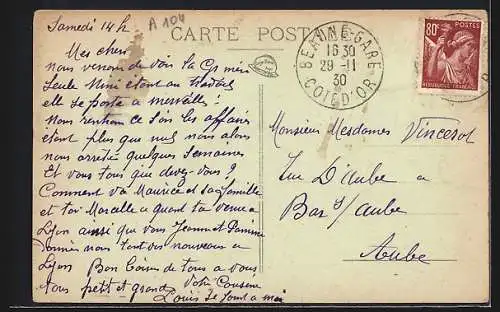 Samedi 14 h
A 104
CARTE POSTALE
BEAUNE-GARE
16 30
29-11
30
COTE D'OR
80c
REPUBLIQUE FRANCAISE
Mes chers
nous venons de voir la
Seule Mimi étant au travail
elle se porte a merveille!
Nous rentrons ce soir les affaires
étant plus que nul nous alons
nous arrêté quelques semaines
Et vous tous que devez-vous?
Comment va Maurice et sa famille
et toi Marcelle a quand ta venue a
Lyon ainsi que vous Jeanne et
nous nouveau a
Lyon Bon baisers de tous a vous
tous petits et grands Votre Cousine
Louis
Monsieur Mesdames Vincerol
Rue D'Aube a
Bar s/Aube
Aube